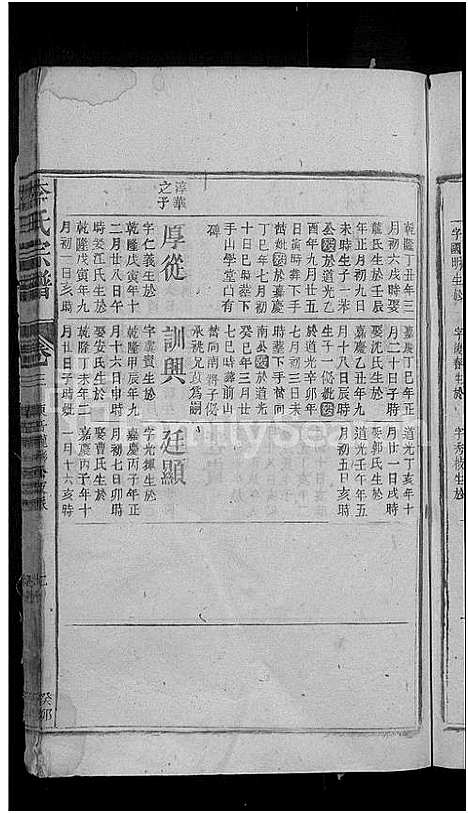 李氏宗譜
卷三
癸卯
乾隆丁丑年三
月初六戌時娶
戴氏生於壬辰
年正月初九日
未時生子一本
公歿於道光乙
酉年九月廿五
日寅時葬下手
嵩妣歿於嘉慶
丁巳年七月初
十日巳時葬下
手山學堂凸有
碑
淳華
之子
厚從
字仁義生於
乾隆戊寅年十
二月廿八日午
時娶江氏生於
乾隆戊寅年九
月初一日亥時
嘉慶丁巳年正
月二十日子時
娶沈氏生於
嘉慶乙丑年九
月十八日辰時
生子一俊妣歿
於道光辛卯年
七月初三日未
時葬下手嵩契
南公歿於道光
癸巳年三月廿
七巳時葬前山
嵩向南將子俊
承祧兄貞為嗣
訓興
字虞賓生於
乾隆甲辰年九
月十六日申時
娶安氏生於
乾隆丁未年二
月廿日子時
道光丁亥年十
月廿一日戌時
娶郭氏生於
道光壬午年五
月初五日亥時
廷顯
字光輝生於
嘉慶丙子年正
月初七日卯時
嘉慶丙子年十
一月十六亥時
FamilySearch